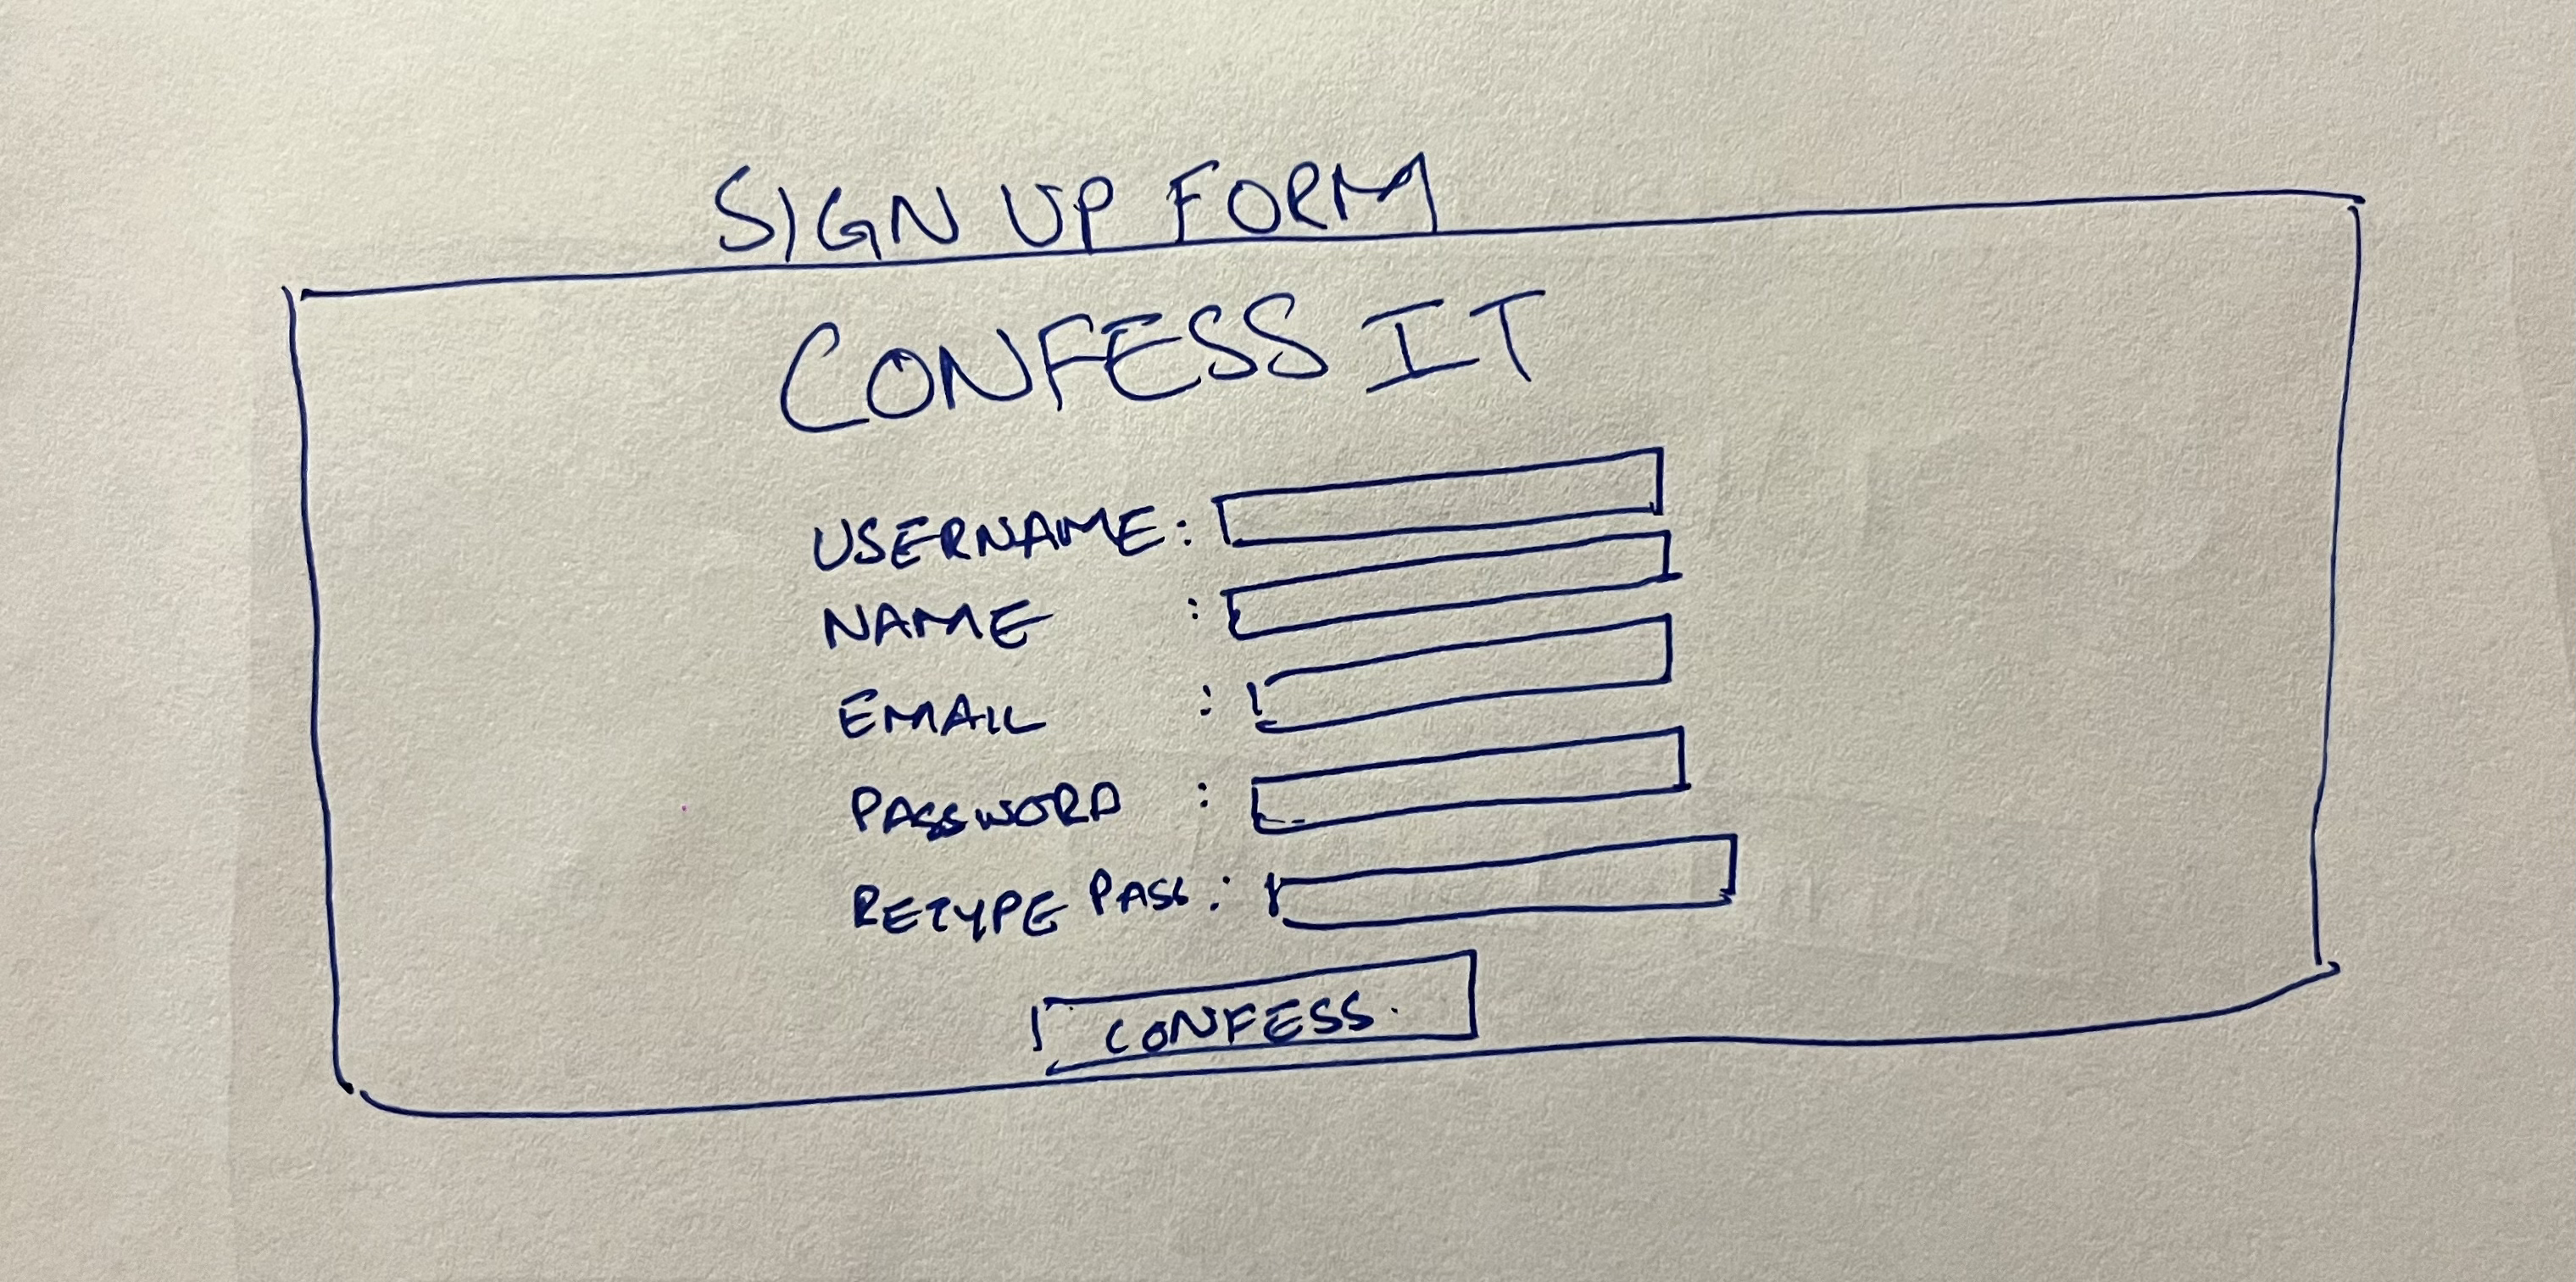 SIGN UP FORM
CONFESS IT
USERNAME:
NAME :
EMAIL :
PASSWORD :
RETYPE PASS:
CONFESS.